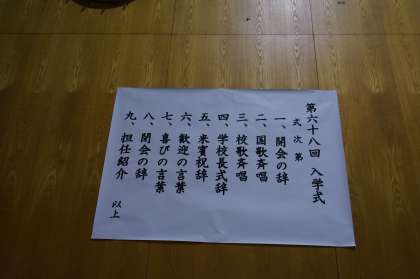 第六十八回 入学式
式次第
一、開会の辞
二、国歌斉唱
三、校歌斉唱
四、学校長式辞
五、来賓祝辞
六、歓迎の言葉
七、喜びの言葉
八、閉会の辞
九、担任紹介
以上